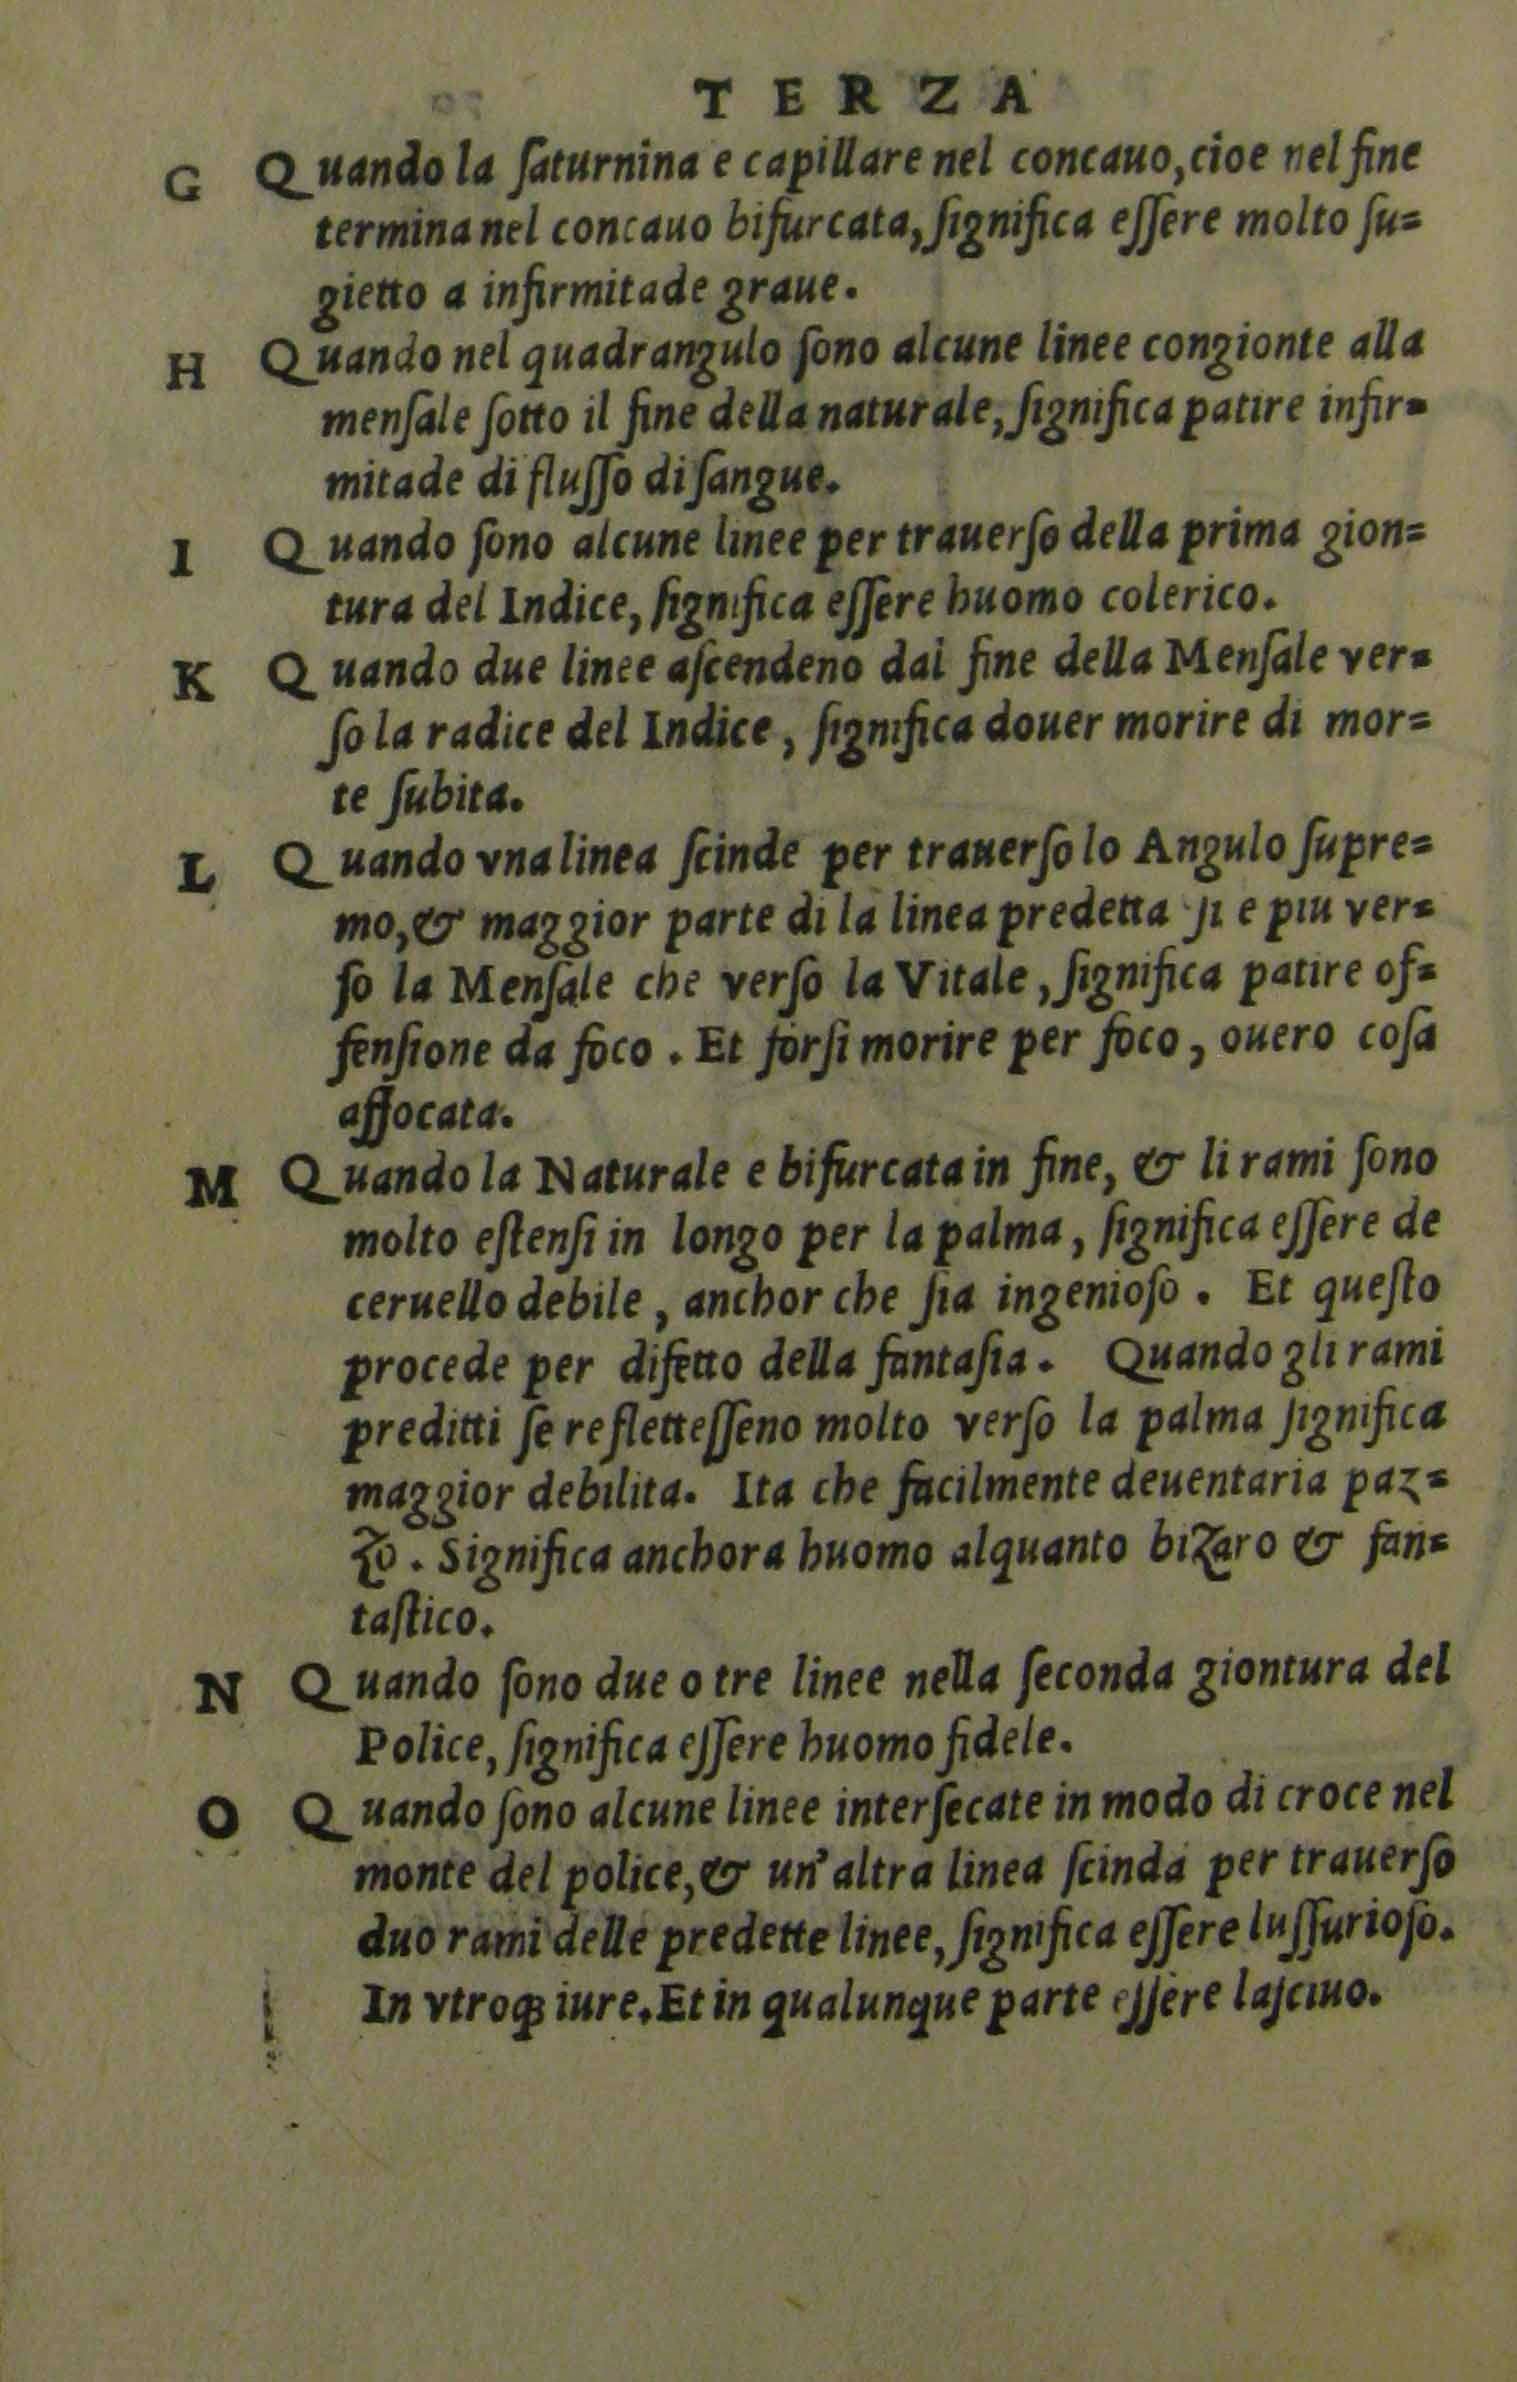 TERZA
G Quando la ſaturnina e capillare nel concauo, cioe nel fine
termina nel concauo bifurcata, ſignifica eſſere molto ſu=
gietto a infirmitade graue.
H Quando nel quadrangulo ſono alcune linee congionte alla
menſale ſotto il fine della naturale, ſignifica patire infir=
mitade di fluſſo di ſangue.
I Quando ſono alcune linee per trauerſo della prima gion=
tura del Indice, ſignifica eſſere huomo colerico.
K Quando due linee aſcendeno dal fine della Menſale ver=
ſo la radice del Indice, ſignifica douer morire di mor=
te ſubita.
L Quando vna linea ſcinde per trauerſo lo Angulo ſupre=
mo, & maggior parte di la linea predetta ſi e piu ver=
ſo la Menſale che verſo la Vitale, ſignifica patire of=
fenſione da foco. Et forſi morire per foco, ouero coſa
affocata.
M Quando la Naturale e bifurcata in fine, & li rami ſono
molto eſtenſi in longo per la palma, ſignifica eſſere de
ceruello debile, anchor che ſia ingenioſo. Et queſto
procede per difetto della fantaſia. Quando gli rami
preditti ſe refletteſſeno molto verſo la palma ſignifica
maggior debilita. Ita che facilmente deuentaria paz=
zo. Significa anchora huomo alquanto bizaro & fan=
taſtico.
N Quando ſono due o tre linee nella ſeconda giontura del
Police, ſignifica eſſere huomo fidele.
O Quando ſono alcune linee interſecate in modo di croce nel
monte del police, & un' altra linea ſcinda per trauerſo
duo rami delle predette linee, ſignifica eſſere luſſurioſo.
In vtroqꝫ iure. Et in qualunque parte eſſere laſciuo.